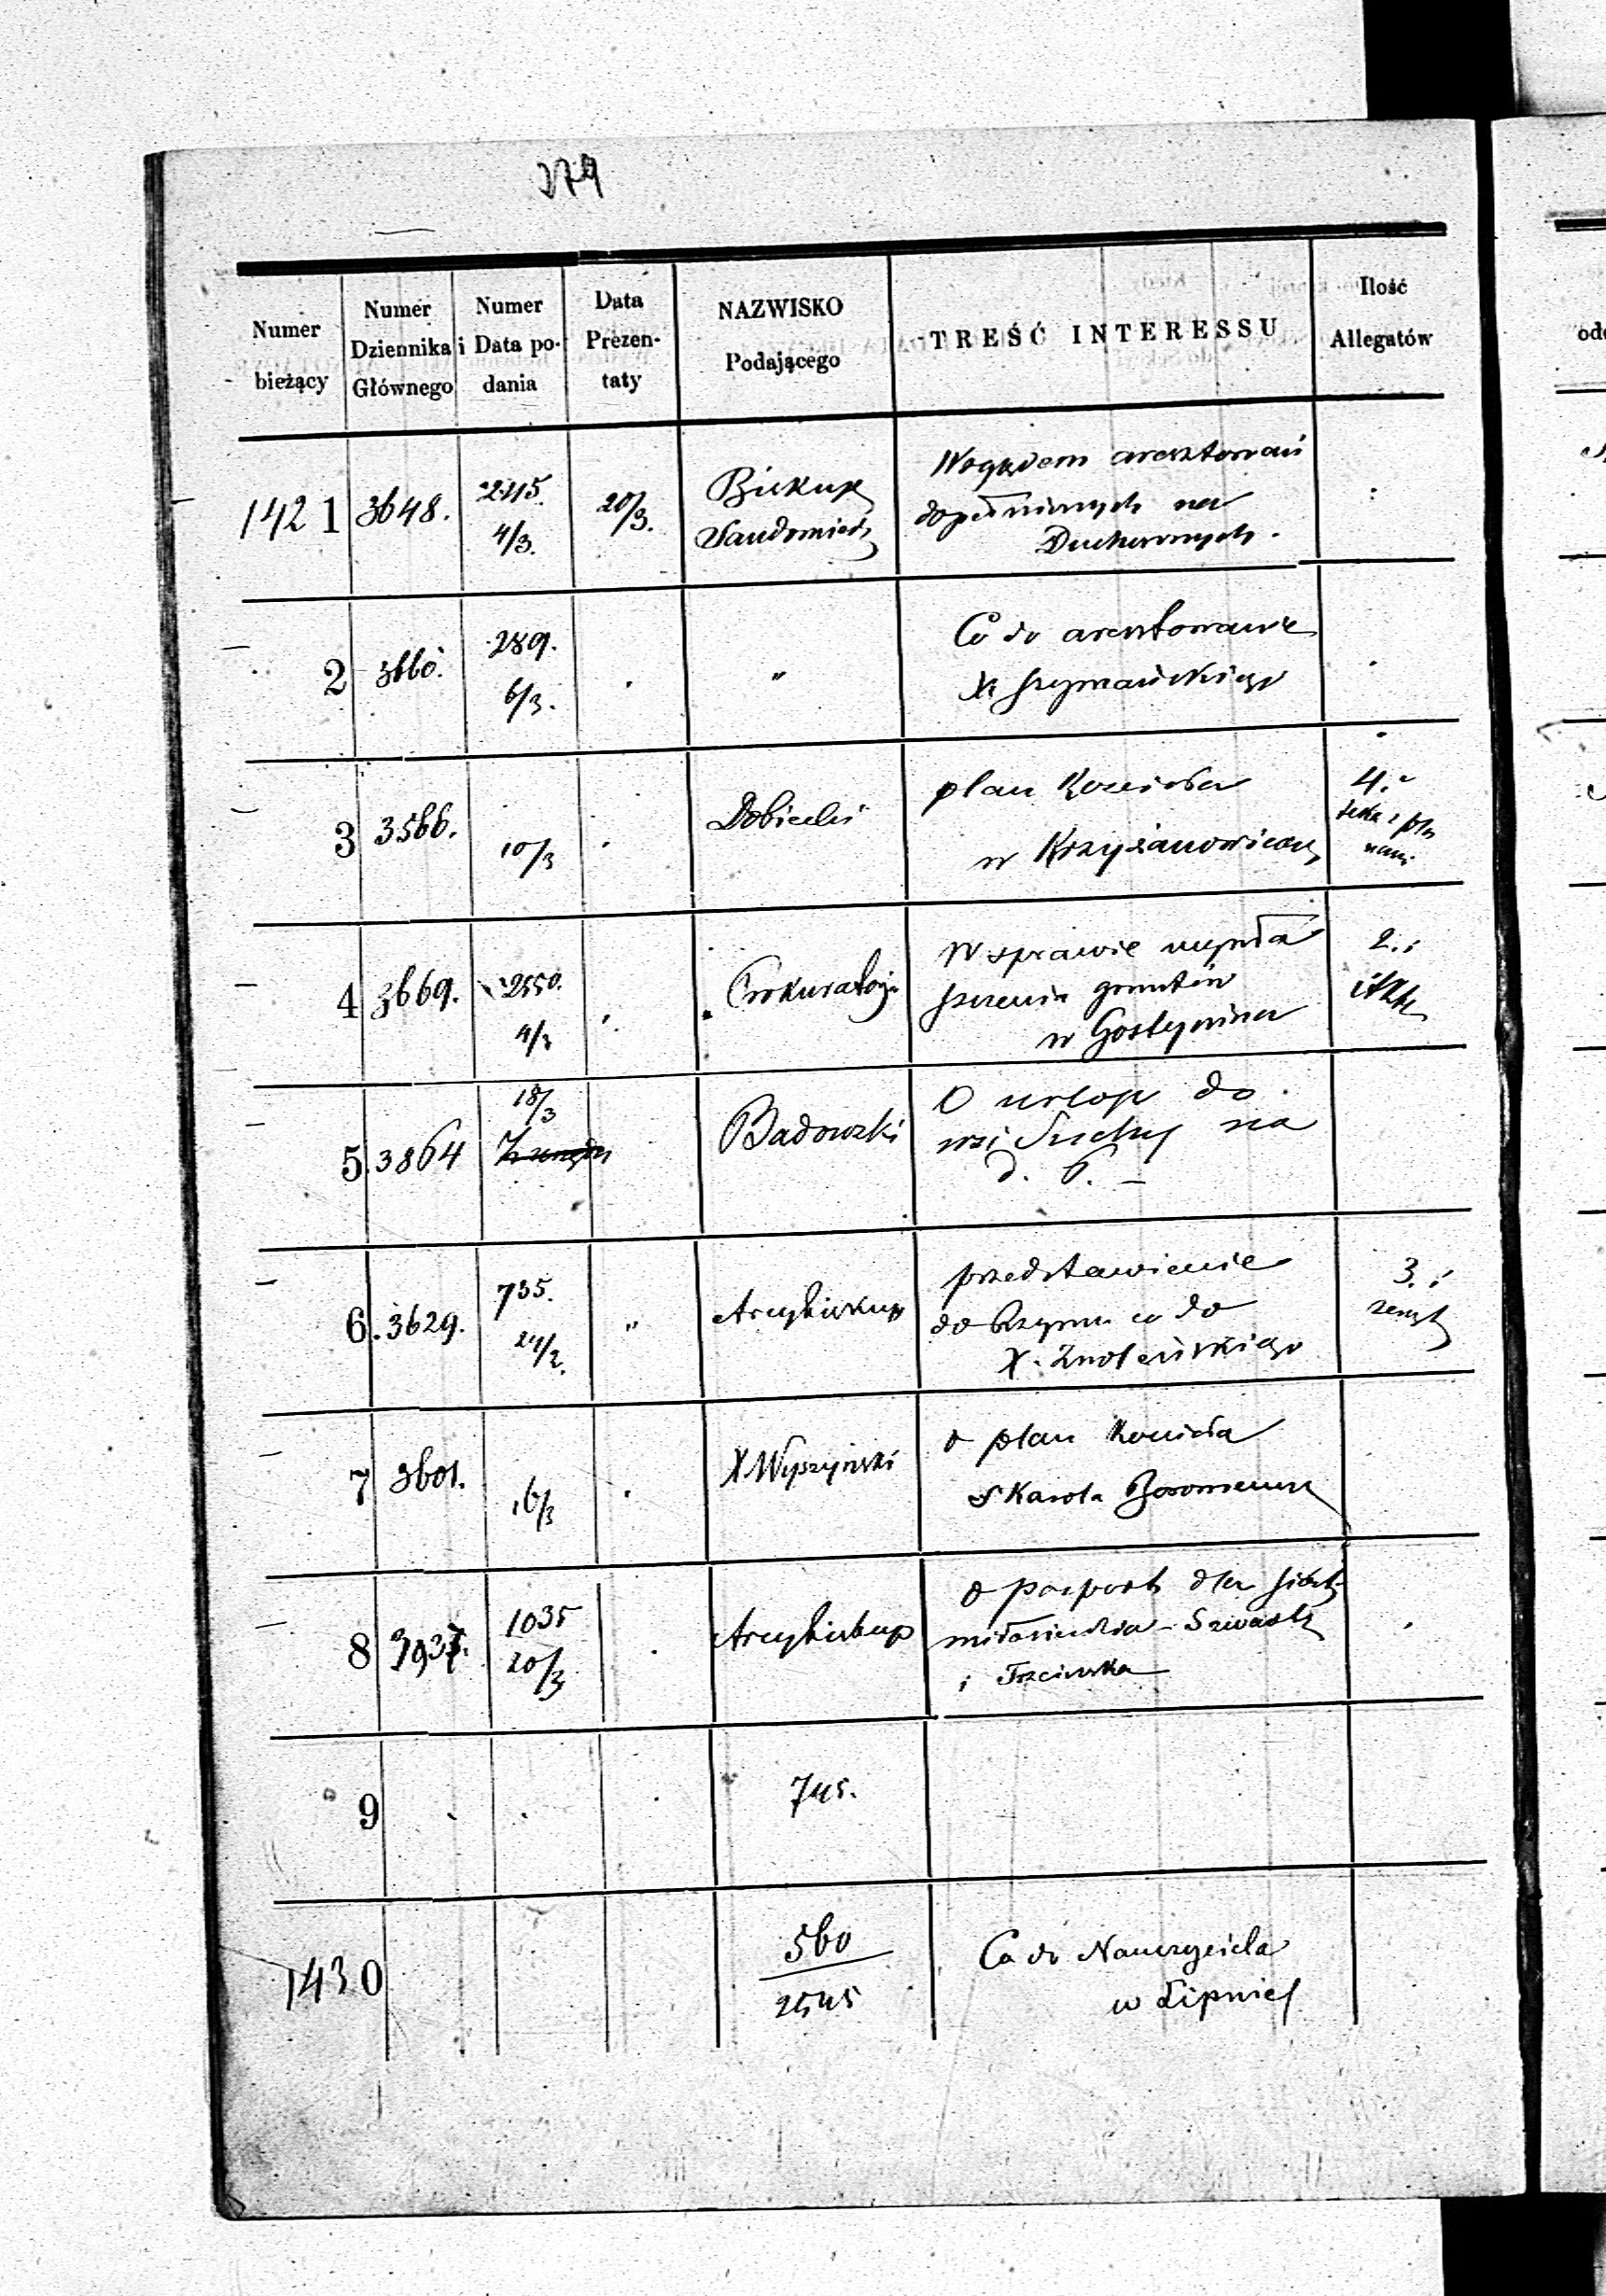 279
Numer bieżący
Numer Dziennika Głównego
Numer i Data podania
Data Prezentaty
NAZWISKO Podającego
TREŚĆ INTERESSU
Ilość Allegatów
1421 3648. 2415. 4/3. 20/3.
Biskup
Sandomiers
Względem aresztowań
dopełnionych na
Duchownych.
2 3660. 289. 6/3. "
Co do aresztowania
X Szymańskiego
3 3566. 10/3 Dobiecki
plan Kościoła
w Krzyżanowicach
4.
teka z pla
nami
4 3669. 2550. 4/3 Prokuratorja
W sprawie wywła
szczenia gruntów
w Gostyninie
2.
5. 3864 18/3 Badowski
O urlop do
wsi Suchy na
d. 6. –
6. 3629. 735. 24/2. " Arcybiskup
przedstawienie
do Rzymu co do
X.
3. i
zeszyt
7 3601. 16/3 X Wyszyński
o plan kościoła
S Karola Boromeusza
8 3937. 1035 20/3 Arcybiskup
o paszport dla Siostr
miłosierdzia –
i Trzcińska
9 745.
1430 560
2545
Co do Nauczyciela
w Lipniej